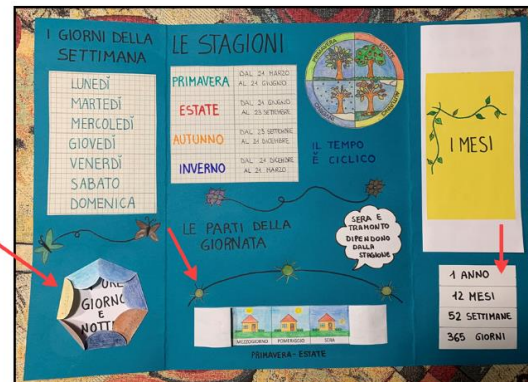 I GIORNI DELLA
SETTIMANA
LUNEDÌ
MARTEDÌ
MERCOLEDÌ
GIOVEDÌ
VENERDÌ
SABATO
DOMENICA
GIORNO
E
LE STAGIONI
PRIMAVERA
DAL 21 MARZO
AL 21 GIUGNO
ESTATE
DAL 21 GIUGNO
AL 23 SETTEMBRE
AUTUNNO
DAL 23 SETTEMBRE
AL 21 DICEMBRE
INVERNO
DAL 21 DICEMBRE
AL 21 MARZO
PRIMAVERA
ESTATE
AUTUNNO
INVERNO
IL TEMPO
È CICLICO
LE PARTI DELLA
GIORNATA
SERA E
TRAMONTO
DIPENDONO
DALLA
STAGIONE
MEZZOGIORNO
POMERIGGIO
SERA
PRIMAVERA - ESTATE
I MESI
1 ANNO
12 MESI
52 SETTIMANE
365 GIORNI